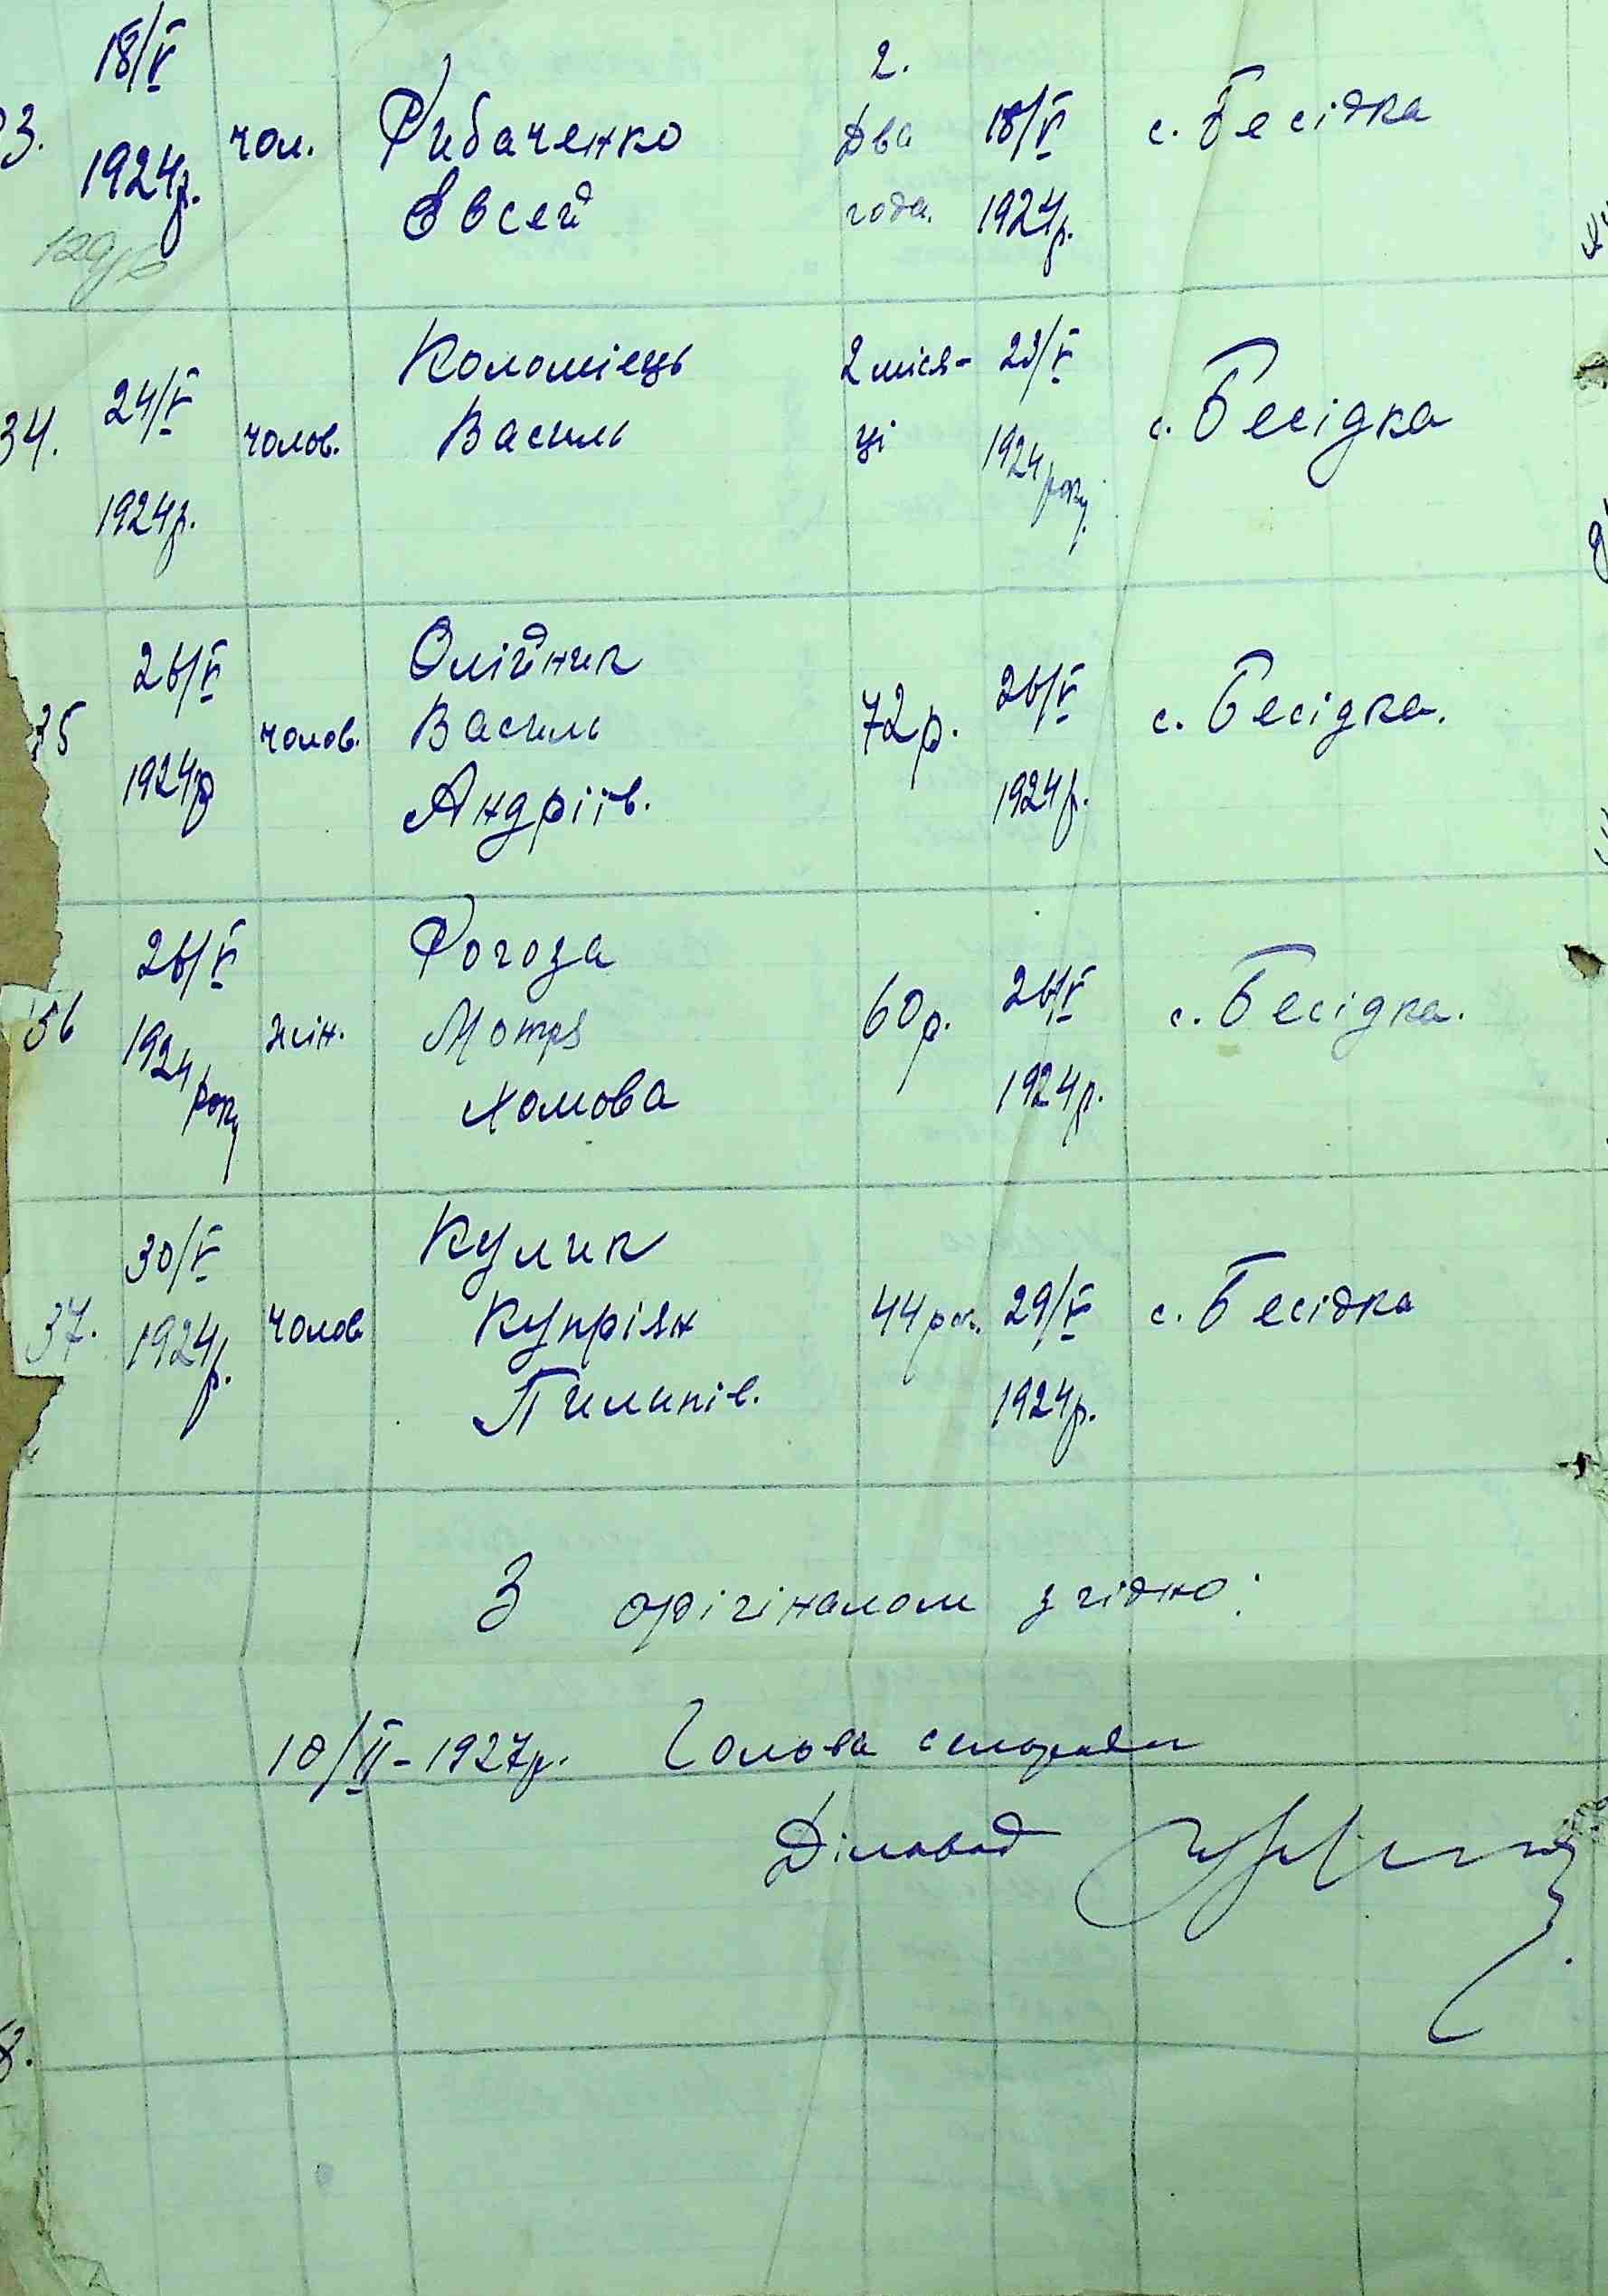 33. 18/V 1924р. чол. Рибаченко Евсей 2. Два года. 18/V 1924р. с. Бесідка
34. 24/V 1924р. чолов. Коломієць Василь 2 міся-ці 23/V 1924 року. с. Бесідка
35 26/V 1924р чолов. Олійник Василь Андріїв. 72р. 26/V 1924р. с. Бесідка.
36 26/V 1924 року жін. Рогоза Мотря Хомова 60р. 26/V 1924р. с. Бесідка.
37. 30/V 1924р. чолов Кулик Купріян Пилипів. 44 рок. 29/V 1924р. с. Бесідка
З орігіналом згідно:
10/II-1927р. Голова сельради
Діловод